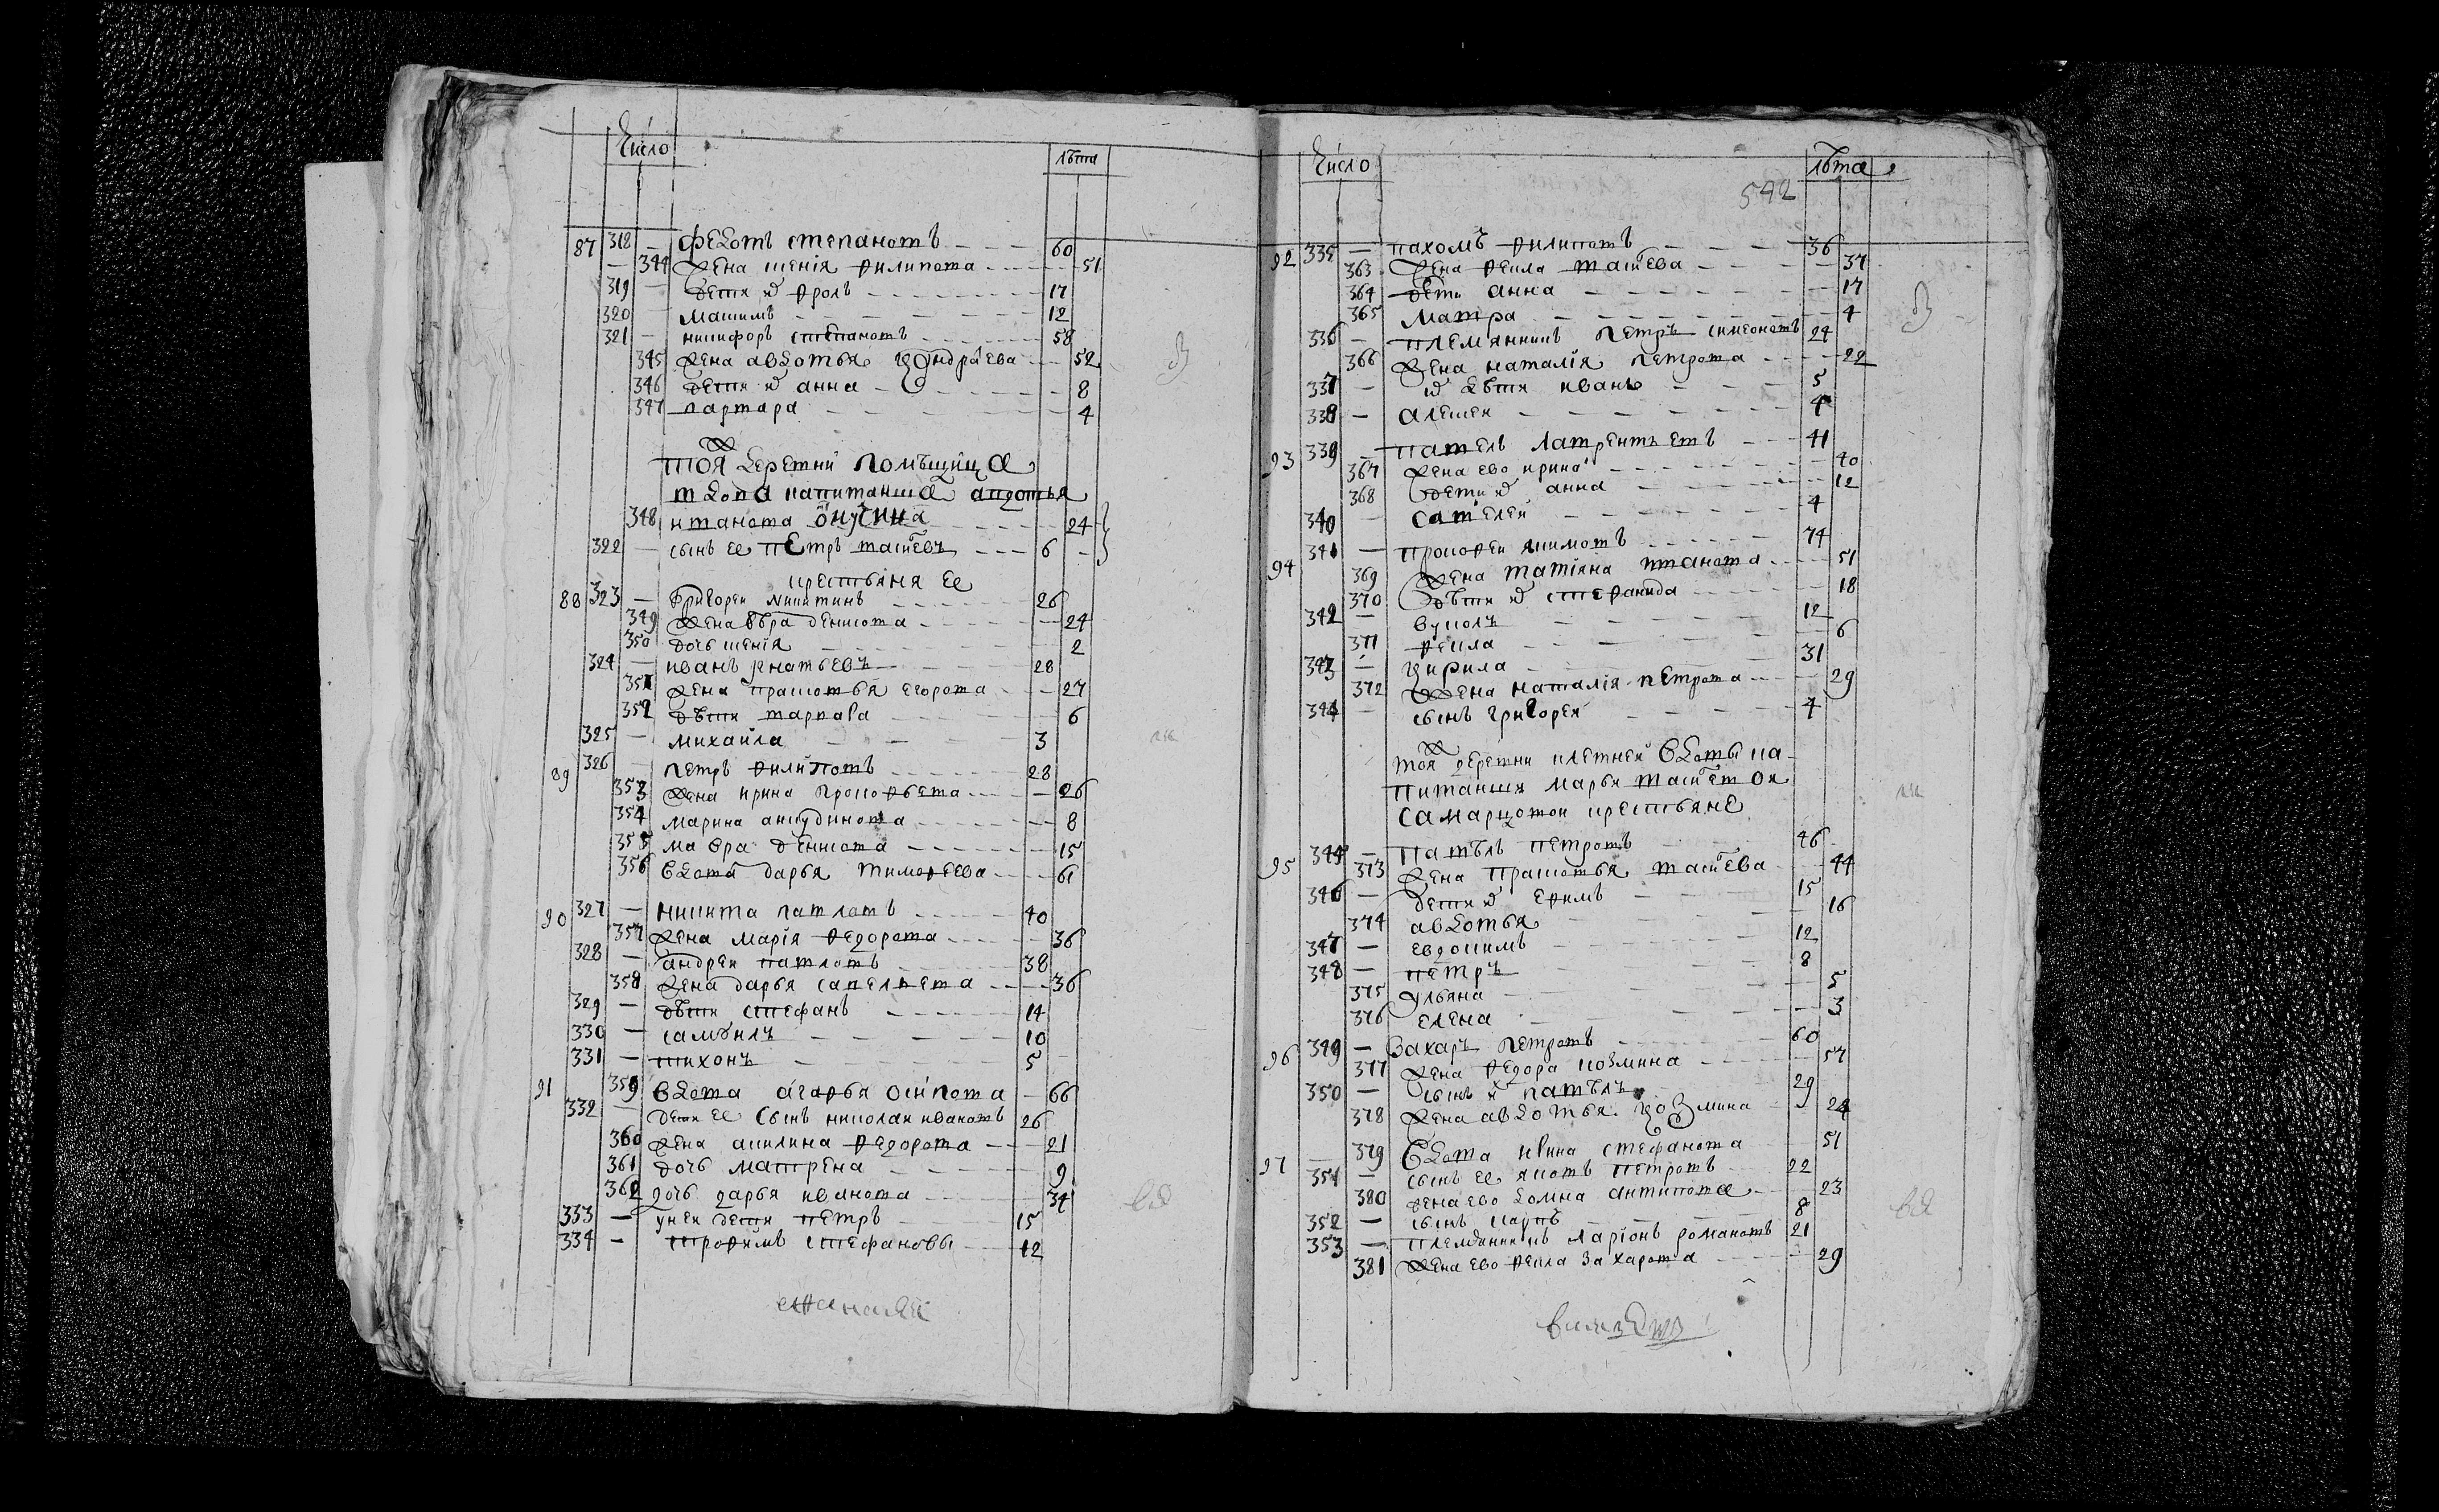 Число лѣта
87 318 — Федотъ степановъ 60
344 Жена ксенія филипова 51
319 — дети их фролъ 17
320 максимъ 12
321 — никифоръ степановъ 58
345 Жена авдотья кондраева 52
346 дети их анна 8
347 варвара 4
тоя деревни помѣщица
вдова капитанша авдотья
348 иванова 24
322 — сынъ ее петръ васиевъ 6
крестьяня ее
88 323 — Григореи никитинъ 26
349 Жена вѣра денисова 24
350 дочь ксенія 2
324 — иванъ игнатьевъ 28
351 Жена прасковья егорова 27
352 дѣти варвара 6
325 — михаила 3
89 326 петръ филиповъ 28
353 Жена ирина прокофьева 26
354 марина анкудинова 8
355 мавра денисова 15
356 вдова дарья тимофеева 61
90 327 — никита павловъ 40
357 Жена марія федорова 36
328 — андреи павловъ 38
358 Жена дарья савельева 36
329 — дѣти стефанъ 14
330 — самоилъ 10
331 — тихонъ 5
91 359 вдова агафья осипова 66
332 — дети ее сынъ николаи ивановъ 26
360 Жена акилина федорова 21
361 дочь матрена 9
362 дочь дарья иванова 34
333 — у неи дети петръ 15
334 — трофимъ стефановы 12
Число лѣта
542
92 335 — пахомъ филиповъ 36
363 Жена фекла васиева 37
364 дети анна 17
365 мавра 4
336 — племянникъ петръ симеоновъ 24
366 Жена наталія петрова 22
337 — их дѣти иванъ 5
338 — алексеи 4
93 339 — павелъ лаврентьевъ 41
367 Жена ево ирина 40
368 дети их анна 12
340 — савелеи 4
94 341 — прокофеи якимовъ 74
369 Жена татіяна иванова 51
370 дѣти их стефанида 18
342 — вуколъ 12
371 фекла 6
343 — кирила 31
372 Жена наталія петрова 29
344 — сынъ григореи 4
тоя деревни вдовы ка-
питанши марьи васиевои
самарцовои крестьяне
95 345 — павѣлъ петровъ 46
373 Жена прасковья васиева 44
346 — дети их ефимъ 15
374 авдотья 16
347 — евдокимъ 12
348 — петръ 8
375 ульяна 5
376 елена 3
96 349 — Захаръ петровъ 60
377 Жена федора козмина 57
350 — сынъ их павѣлъ 29
378 Жена авдотья козмина 24
97 379 вдова стефанова 51
351 — сынъ ее яковъ петровъ 22
380 Жена ево домна антипова 23
352 — сынъ карпъ 8
353 — племянникъ ларіонъ романовъ 21
381 Жена ево фекла захарова 29